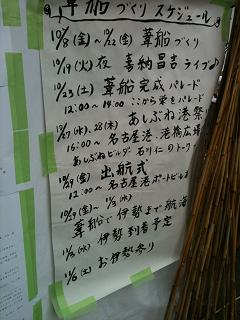 葦船づくりスケジュール
10/8(金)~10/22(金) 葦船づくり
10/19(火)夜 喜納昌吉ライブ♪
10/23(土) 葦船完成パレード
12:00~14:00 ここから栄をパレード
10/27(水)、28(木) あしぶね港祭
16:00~ 名古屋港、港橋広場
あしぶねビルダー 石川仁のトーク
10/29(金) 出航式
12:00~ 名古屋港ポートビル
10/29(金)~11/3(水)
葦船で伊勢まで航海
11/3(水) 伊勢到着予定
11/6(土) お伊勢参り